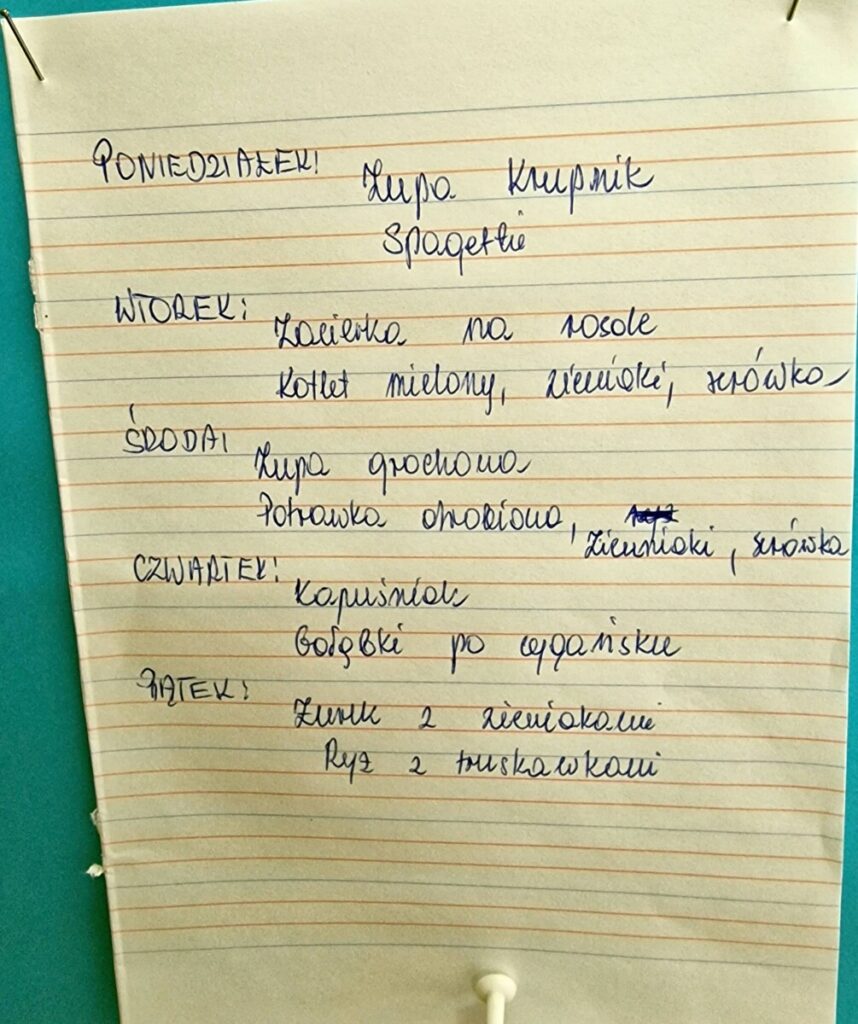 PONIEDZIAŁEK:
Zupa Krupnik
Spagettie
WTOREK:
Zacierka na rosole
Kotlet mielony, ziemiaki, surówka
ŚRODA:
Zupa grochowa
Potrawka drobiowa,
ziemniaki, surówka
CZWARTEK:
Kapuśniak
Gołąbki po cygańsku
PIĄTEK:
Żurek z ziemiakami
Ryż z truskawkami